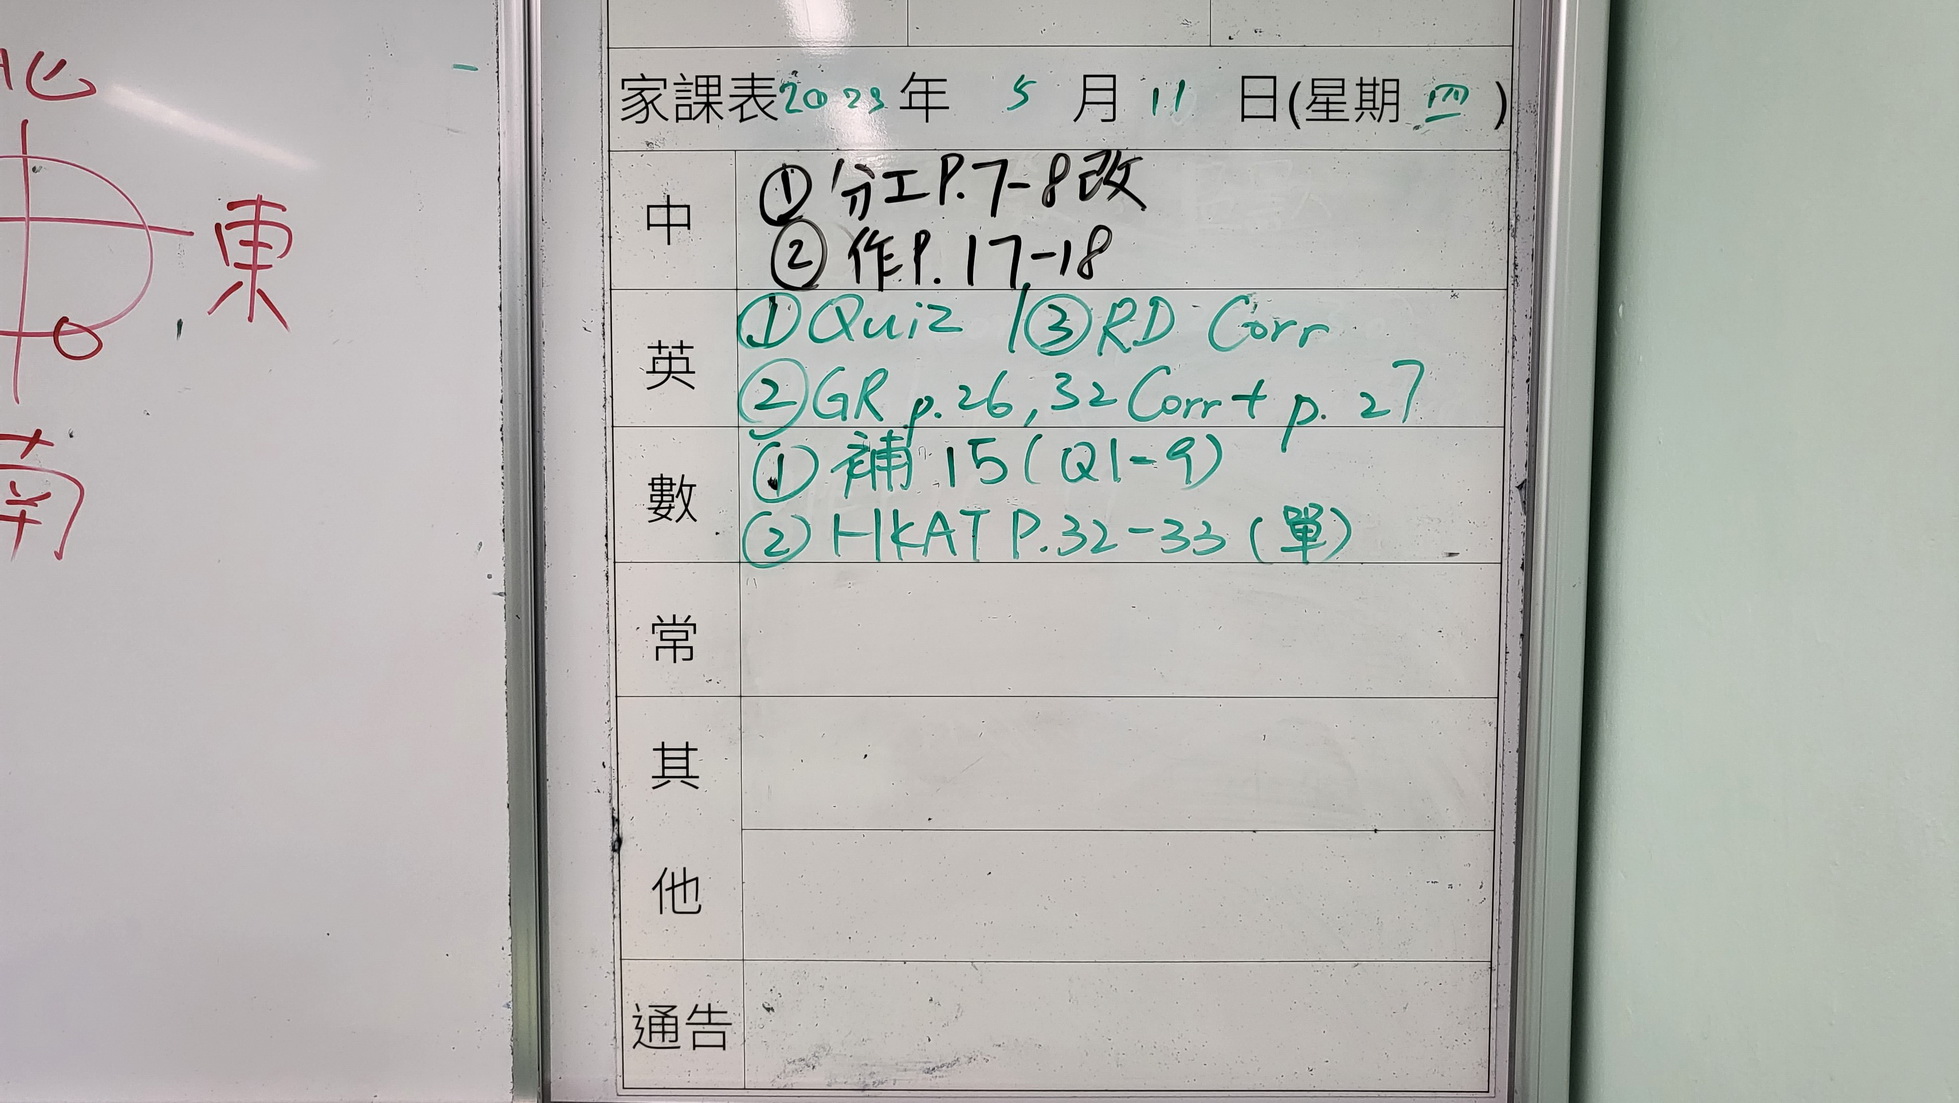 北
東
南
家課表2023年 5 月 11 日(星期 四 )
中
① 份工P.7-8改
② 作P.17-18
英
① Quiz / ③ RD Corr
② GR p.26,32 Corr + p. 27
數
① 補 15 (Q1-9)
② HKAT P.32-33 (單)
常
其
他
通告